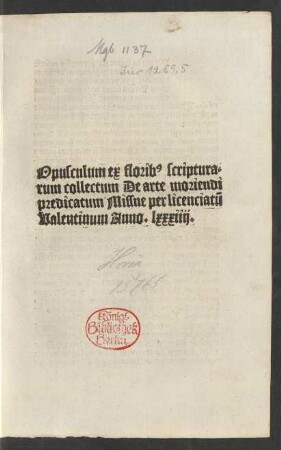 Mgb 1137
Inc 1269,5
Opusculum ex florib⁹ scriptura-
rum collectum De arte moriendi
predicatum Missne per licenciatū
Valentinum Anno. lxxxiiij.
Hain
15765
Königl.
Bibliothek
Berlin.